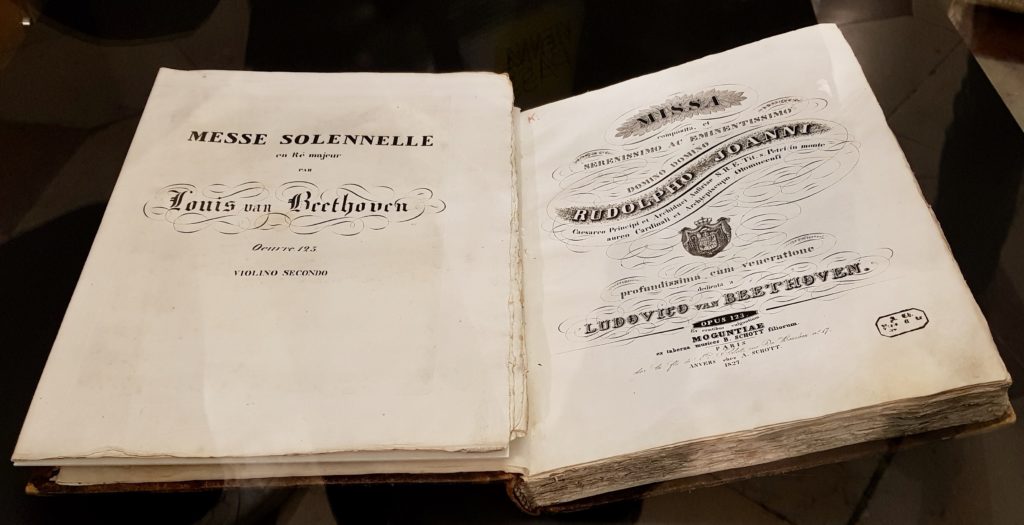 MESSE SOLENNELLE
en Ré majeur
PAR
Louis van Beethoven
Oeuvre 123
VIOLINO SECONDO
MISSA
composita, et
SERENISSIMO AC EMINENTISSIMO
DOMINO DOMINO
RUDOLPHO JOANNI
Caesareo Principi et Archiduci Austriae S. R. E. Tit. s. Petri in monte
aureo Cardinali et Archiepiscopo Olomucensi
profundissima cum veneratione
dedicata a
LUDOVICO VAN BEETHOVEN.
OPUS 123
Ex sumtibus vulgantium
MOGUNTIAE
ex taberna musices B. SCHOTT filiorum.
PARIS
ANVERS chez A. SCHOTT.
1827